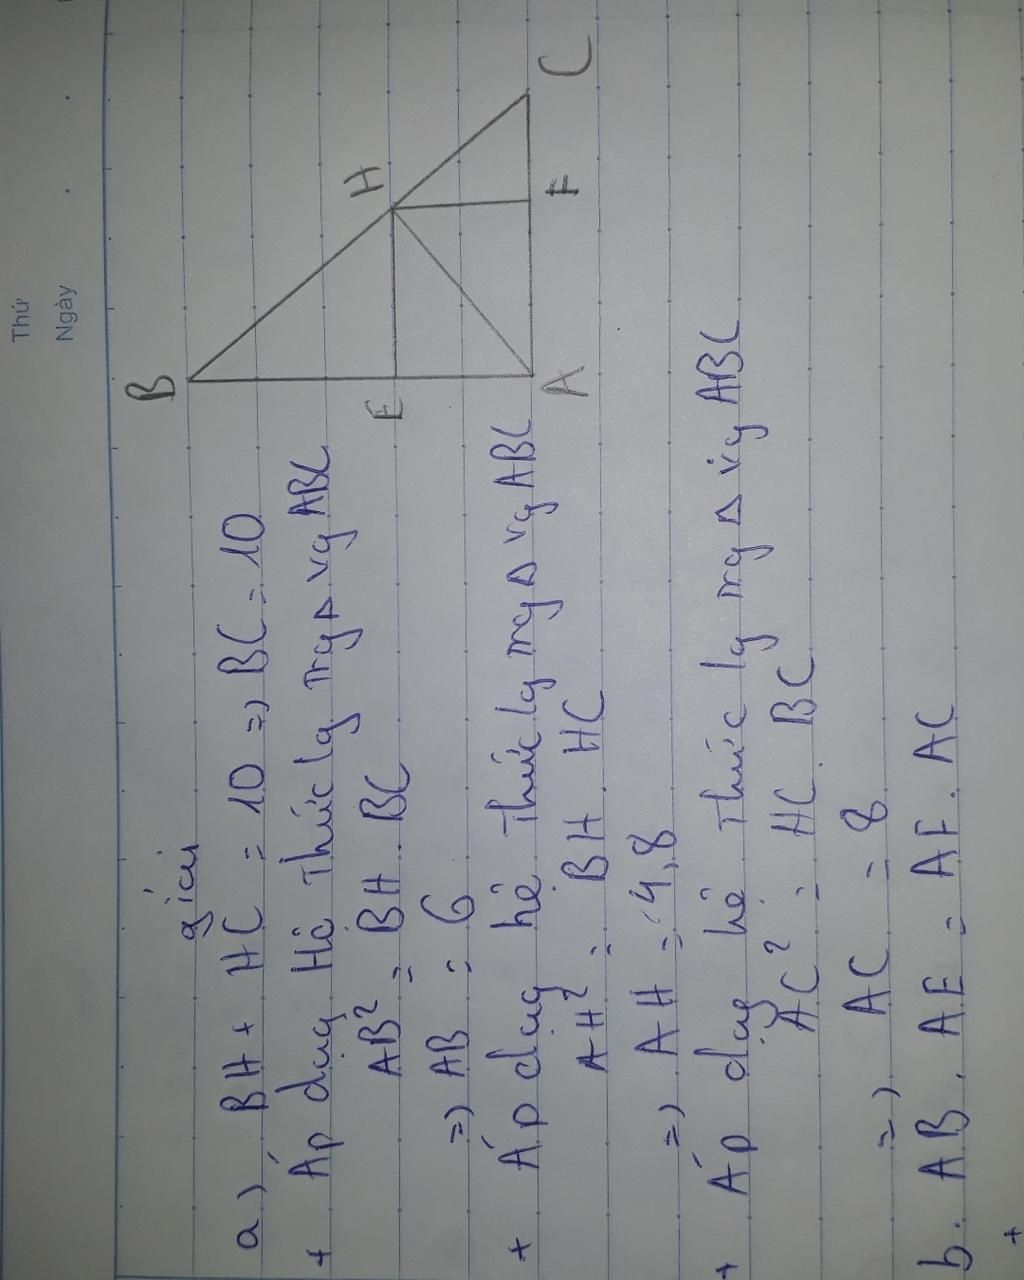 Thứ
Ngày
B
H
C
E
F
A
giải
a) BH + HC = 10 => BC = 10
+ Áp dụng Hê thức lg trg Δ vg ABC
AB² = BH . BC
=) AB = 6
+ Áp dụng hệ thức lg trg Δ vg ABC
AH² = BH . HC
=) AH = 4,8
+ Áp dụng hệ thức lg trg Δ vg ABC
AC² = HC . BC
=) AC = 8
b. AB . AE = AF . AC
+